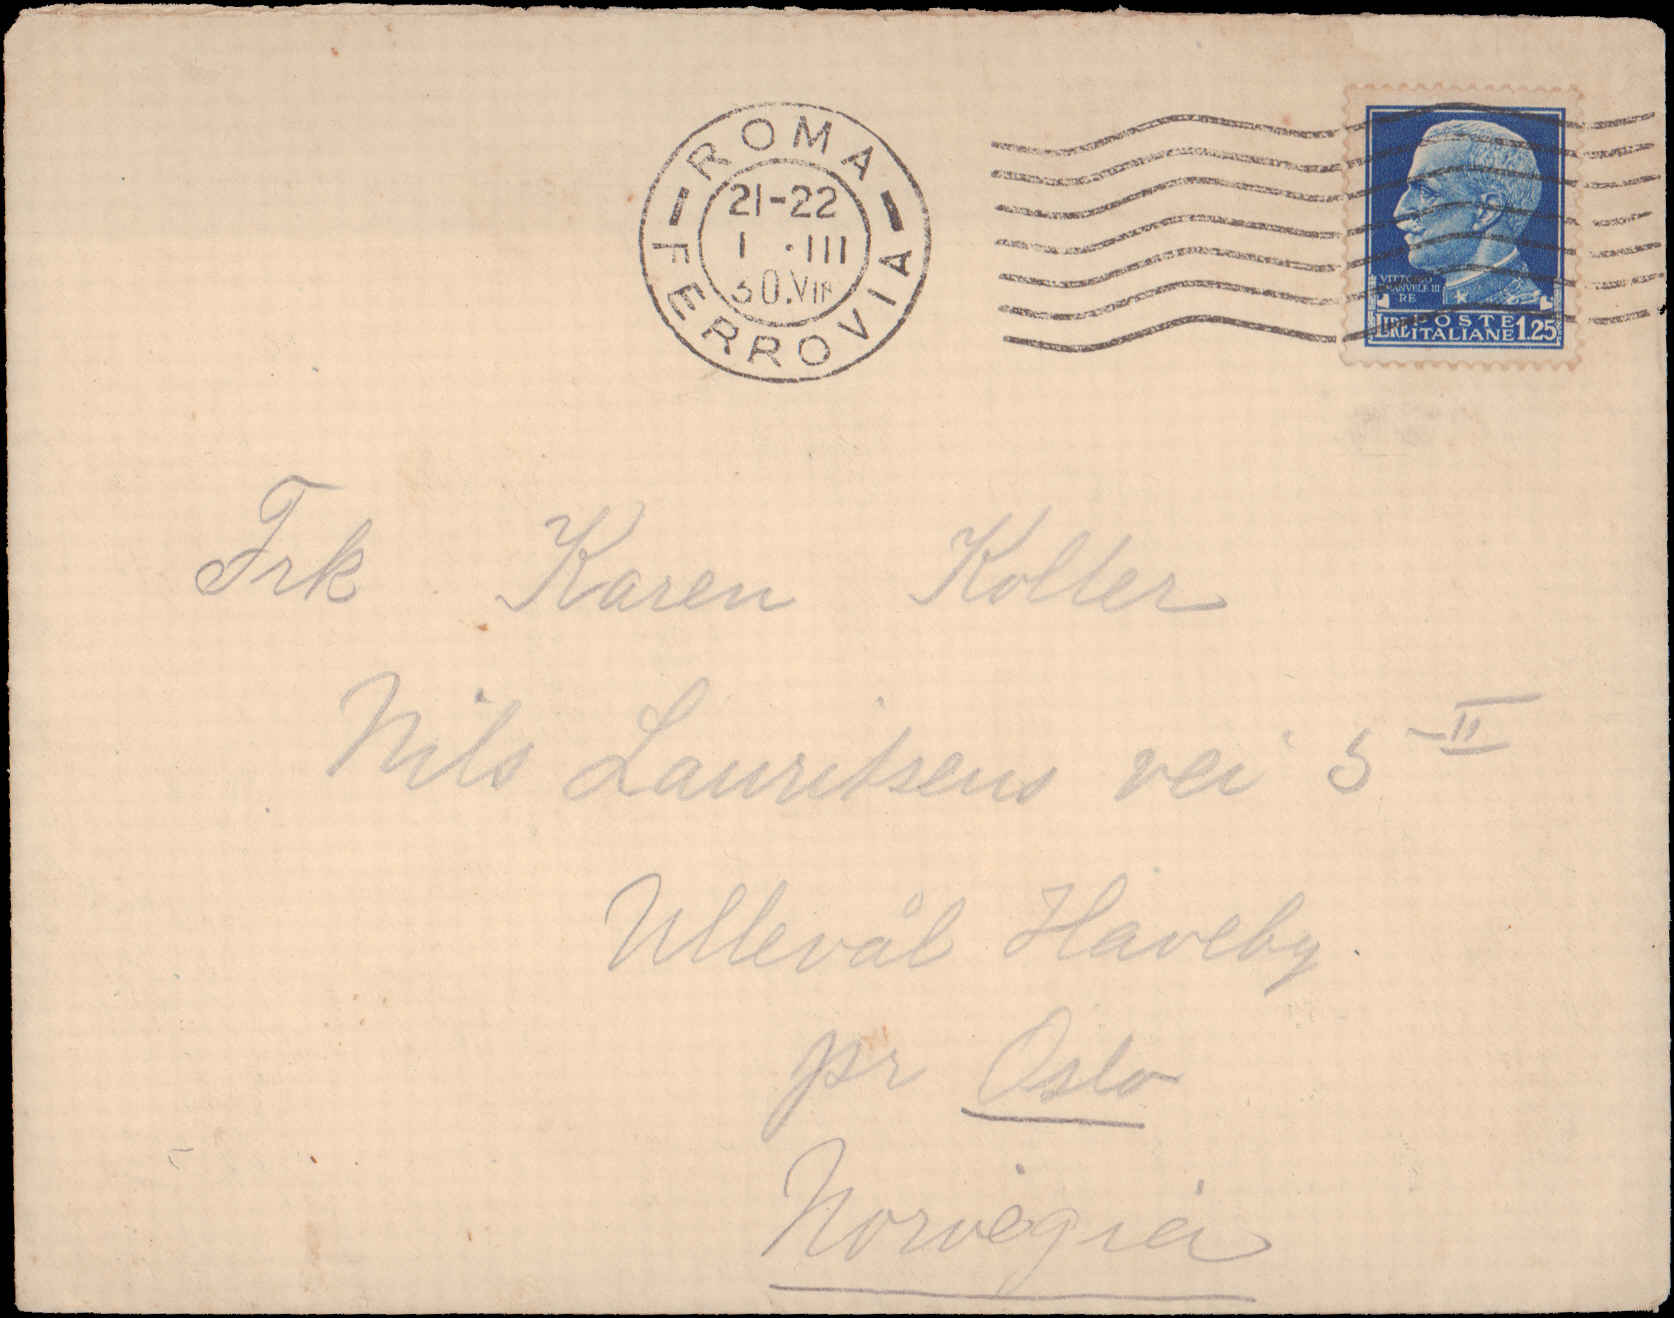 ROMA
21-22
1 ·III
30.VIII
FERROVIA
VITTORIO
EMANVELE III
RE
LIRE POSTE ITALIANE 1.25
Frk Karen Kolter
Nils Lauritsens vei 5 - II
Ullevål Haveby.
pr Oslo
Norvegia